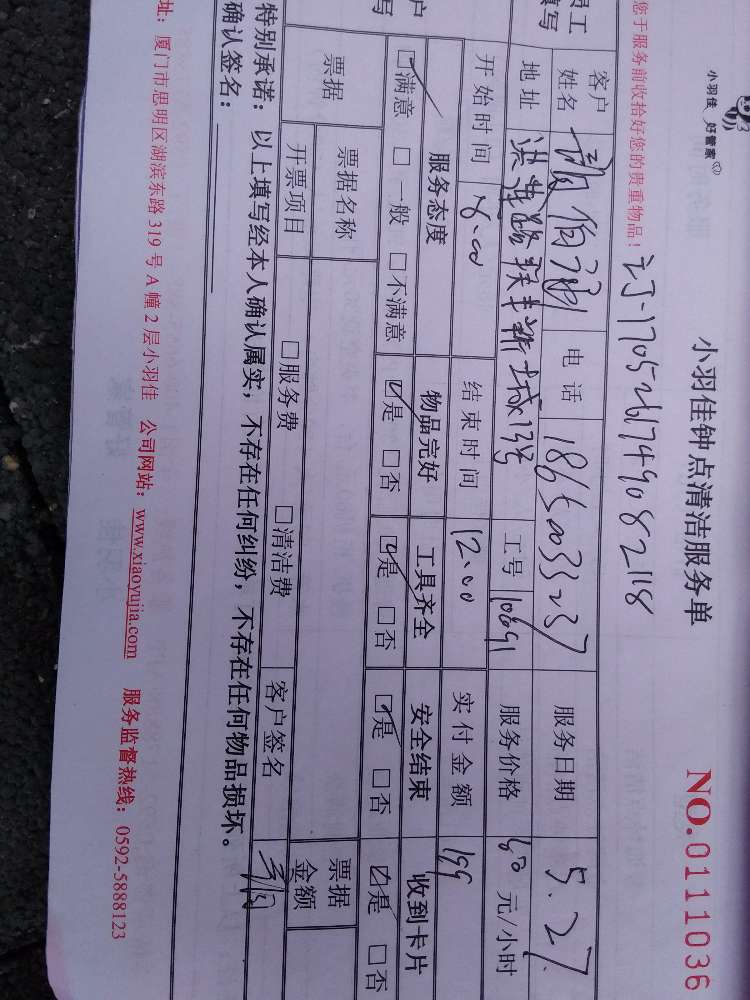 小羽佳 好管家
小羽佳钟点清洁服务单
NO.0111036
您于服务前收拾好您的贵重物品！
订J-1705261749082118
员工
填写
客户姓名 电话 18650033237 服务日期 5.27
地址 洪莲路联丰新城13号 工号 10691 服务价格 50 元/小时
开始时间 8.00 结束时间 12.00 实付金额 199
户
写
服务态度 物品完好 工具齐全 安全结束 收到卡片
☑满意 □一般 □不满意 ☑是 □否 ☑是 □否 ☑是 □否 ☑是 □否
票据 票据名称 票据金额
开票项目 □服务费 □清洁费 客户签名
特别承诺：以上填写经本人确认属实，不存在任何纠纷，不存在任何物品损坏。
确认签名：
址：厦门市思明区湖滨东路 319 号 A 幢 2 层小羽佳 公司网站：www.xiaoyujia.com 服务监督热线：0592-5888123